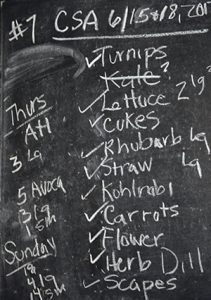 #7 CSA 6/15+18, 201
✓Turnips
Kale?
✓Lettuce 2 lg?
✓Cukes
✓Rhubarb lg
✓Straw lg
✓Kohlrabi
✓Carrots
✓Flower
✓Herb Dill
✓Scapes
Thurs
AH
3 lg
5 Avoca
3 lg
1 Sm
Sunday
18
4 lg
14 Sm